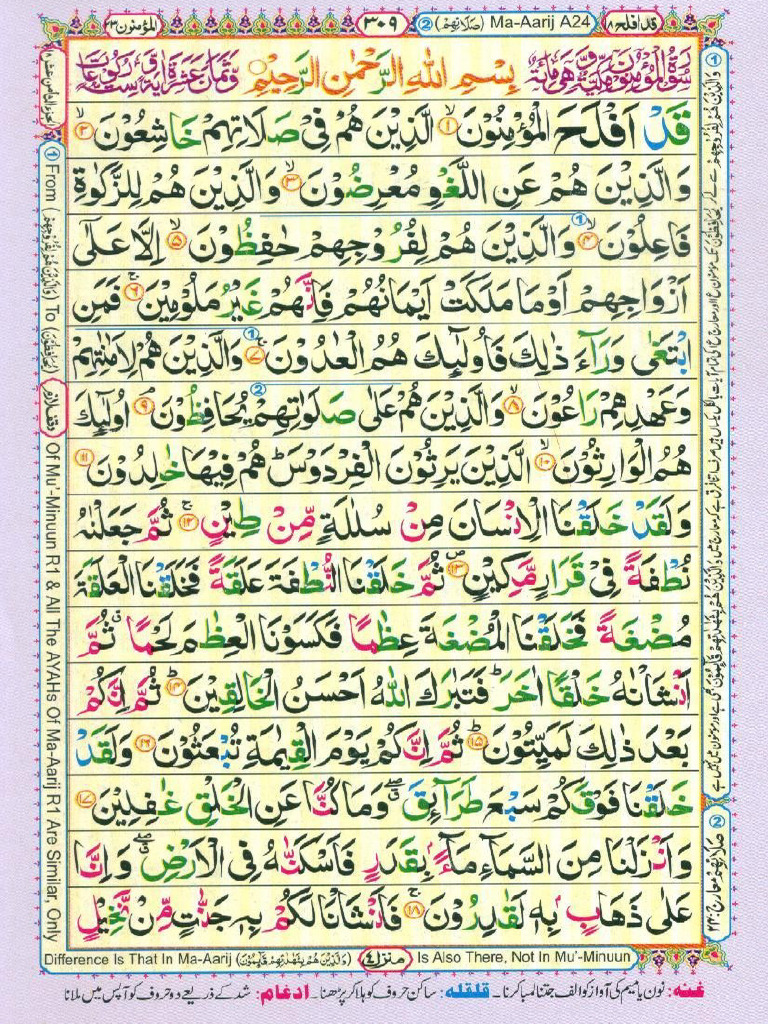 المؤمنون ٢٣
٣٠٩
② (صَلَاتِهِمْ) Ma-Aarij A24
قد افلح ١٨
بِسْمِ اللهِ الرَّحْمٰنِ الرَّحِيْمِ
قَدْ اَفْلَحَ الْمُؤْمِنُوْنَ ۙ﴿۱﴾ الَّذِيْنَ هُمْ فِيْ صَلَاتِهِمْ خَاشِعُوْنَ ۙ﴿۲﴾
وَالَّذِيْنَ هُمْ عَنِ اللَّغْوِ مُعْرِضُوْنَ ۙ﴿۳﴾ وَالَّذِيْنَ هُمْ لِلزَّكٰوةِ
فَاعِلُوْنَ ۙ﴿۴﴾ ① وَالَّذِيْنَ هُمْ لِفُرُوْجِهِمْ حٰفِظُوْنَ ۙ﴿۵﴾ اِلَّا عَلٰٓى
اَزْوَاجِهِمْ اَوْ مَا مَلَكَتْ اَيْمَانُهُمْ فَاِنَّهُمْ غَيْرُ مَلُوْمِيْنَ ۚ﴿۶﴾ فَمَنِ
ابْتَغٰى وَرَآءَ ذٰلِكَ فَاُولٰٓئِكَ هُمُ الْعٰدُوْنَ ۚ﴿۷﴾ ① وَالَّذِيْنَ هُمْ لِاَمٰنٰتِهِمْ
وَعَهْدِهِمْ رَاعُوْنَ ۙ﴿۸﴾ وَالَّذِيْنَ هُمْ عَلٰى صَلَوٰتِهِمْ ② يُحَافِظُوْنَ ۘ﴿۹﴾ اُولٰٓئِكَ
هُمُ الْوَارِثُوْنَ ۙ﴿۱۰﴾ الَّذِيْنَ يَرِثُوْنَ الْفِرْدَوْسَ ؕ هُمْ فِيْهَا خٰلِدُوْنَ ﴿۱۱﴾
وَلَقَدْ خَلَقْنَا الْاِنْسَانَ مِنْ سُلٰلَةٍ مِّنْ طِيْنٍ ۚ﴿۱۲﴾ ثُمَّ جَعَلْنٰهُ
نُطْفَةً فِيْ قَرَارٍ مَّكِيْنٍ ۪﴿۱۳﴾ ثُمَّ خَلَقْنَا النُّطْفَةَ عَلَقَةً فَخَلَقْنَا الْعَلَقَةَ
مُضْغَةً فَخَلَقْنَا الْمُضْغَةَ عِظٰمًا فَكَسَوْنَا الْعِظٰمَ لَحْمًا ۗ ثُمَّ
اَنْشَاْنٰهُ خَلْقًا اٰخَرَ ؕ فَتَبٰرَكَ اللهُ اَحْسَنُ الْخَالِقِيْنَ ؕ﴿۱۴﴾ ثُمَّ اِنَّكُمْ
بَعْدَ ذٰلِكَ لَمَيِّتُوْنَ ؕ﴿۱۵﴾ ثُمَّ اِنَّكُمْ يَوْمَ الْقِيٰمَةِ تُبْعَثُوْنَ ﴿۱۶﴾ وَلَقَدْ
خَلَقْنَا فَوْقَكُمْ سَبْعَ طَرَآئِقَ ۖۗ وَمَا كُنَّا عَنِ الْخَلْقِ غٰفِلِيْنَ ﴿۱۷﴾
وَاَنْزَلْنَا مِنَ السَّمَآءِ مَآءًۢ بِقَدَرٍ فَاَسْكَنّٰهُ فِي الْاَرْضِ ۖۗ وَاِنَّا
عَلٰى ذَهَابٍۭ بِهٖ لَقٰدِرُوْنَ ۚ﴿۱۸﴾ فَاَنْشَاْنَا لَكُمْ بِهٖ جَنّٰتٍ مِّنْ نَّخِيْلٍ
① From (وَالَّذِيْنَ هُمْ لِفُرُوْجِهِمْ) To (يُحَافِظُوْنَ)
وقف لازم
Of Mu'-Minuun R1 & All The AYAHs Of Ma-Aarij R1 Are Similar, Only
Difference Is That In Ma-Aarij (وَالَّذِيْنَ هُمْ بِشَهٰدٰتِهِمْ قَآئِمُوْنَ)
منزل ٤
Is Also There, Not In Mu'-Minuun
غنه: نون یا میم کی آواز کو الف جتنا لمبا کرنا۔ قلقله: ساکن حروف کو ہلا کر پڑھنا۔ ادغام: شد کے ذریعے دو حروف کو آپس میں ملانا